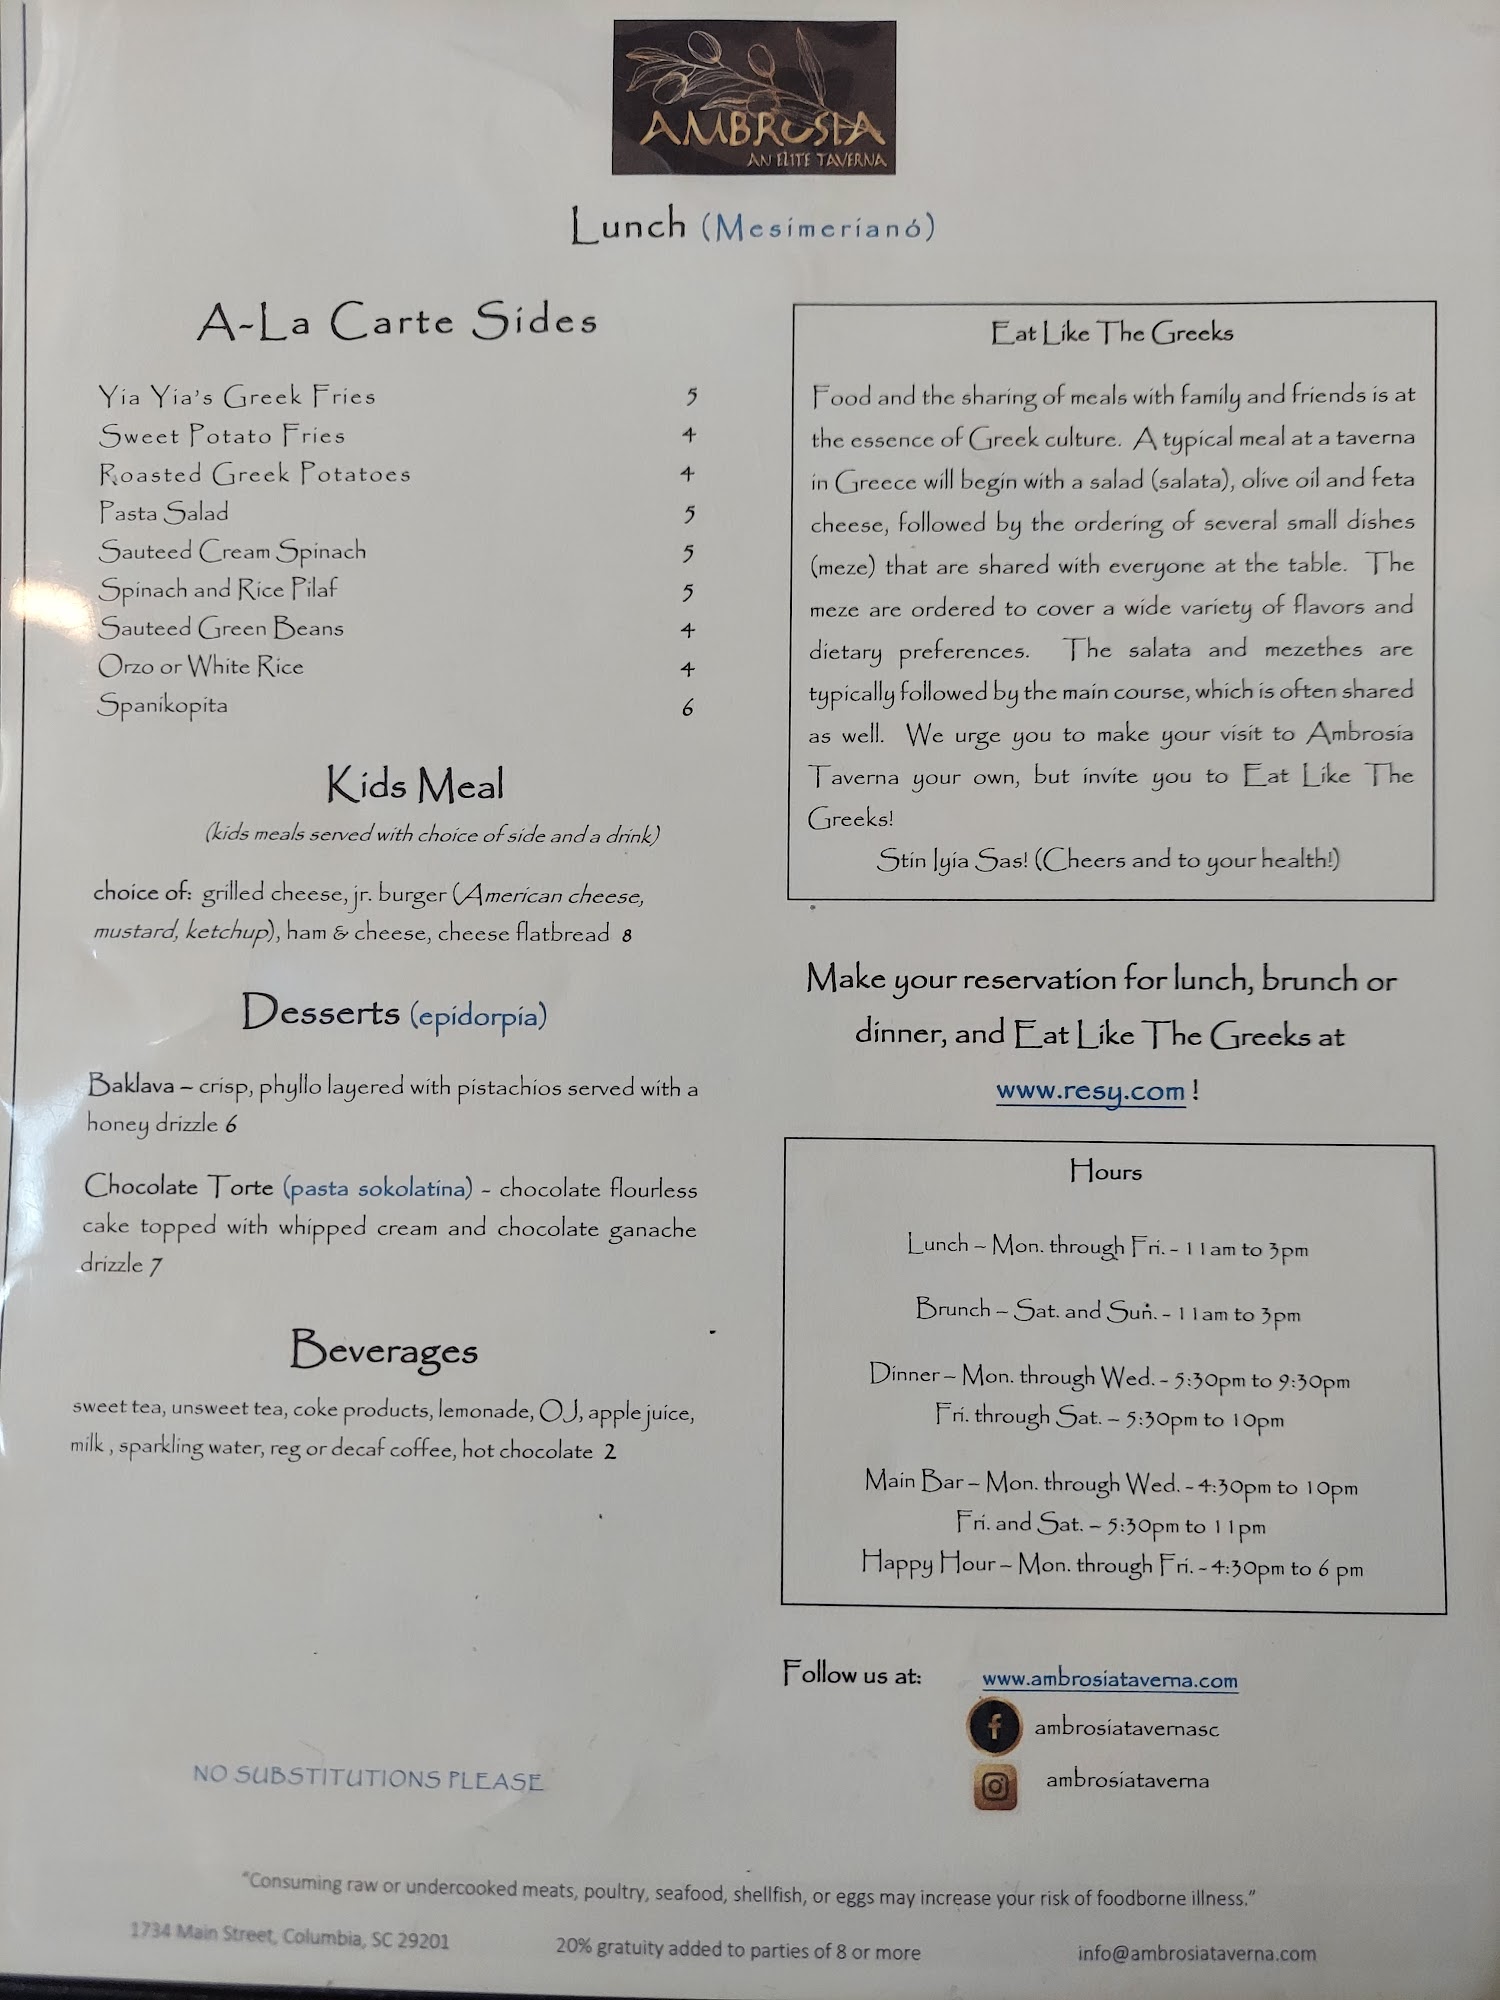 AMBROSIA
AN ELITE TAVERNA
Lunch (Mesimerianó)
A-La Carte Sides
Yia Yia's Greek Fries 5
Sweet Potato Fries 4
Roasted Greek Potatoes 4
Pasta Salad 5
Sauteed Cream Spinach 5
Spinach and Rice Pilaf 5
Sauteed Green Beans 4
Orzo or White Rice 4
Spanikopita 6
Kids Meal
(kids meals served with choice of side and a drink)
choice of: grilled cheese, jr. burger (American cheese,
mustard, ketchup), ham & cheese, cheese flatbread 8
Desserts (epidorpia)
Baklava – crisp, phyllo layered with pistachios served with a
honey drizzle 6
Chocolate Torte (pasta sokolatina) - chocolate flourless
cake topped with whipped cream and chocolate ganache
drizzle 7
Beverages
sweet tea, unsweet tea, coke products, lemonade, OJ, apple juice,
milk , sparkling water, reg or decaf coffee, hot chocolate 2
NO SUBSTITUTIONS PLEASE
Eat Like The Greeks
Food and the sharing of meals with family and friends is at
the essence of Greek culture. A typical meal at a taverna
in Greece will begin with a salad (salata), olive oil and feta
cheese, followed by the ordering of several small dishes
(meze) that are shared with everyone at the table. The
meze are ordered to cover a wide variety of flavors and
dietary preferences. The salata and mezethes are
typically followed by the main course, which is often shared
as well. We urge you to make your visit to Ambrosia
Taverna your own, but invite you to Eat Like The
Greeks!
Stin Iyia Sas! (Cheers and to your health!)
Make your reservation for lunch, brunch or
dinner, and Eat Like The Greeks at
www.resy.com !
Hours
Lunch – Mon. through Fri. - 11am to 3pm
Brunch – Sat. and Sun. - 11am to 3pm
Dinner – Mon. through Wed. - 5:30pm to 9:30pm
Fri. through Sat. – 5:30pm to 10pm
Main Bar – Mon. through Wed. - 4:30pm to 10pm
Fri. and Sat. – 5:30pm to 11pm
Happy Hour – Mon. through Fri. - 4:30pm to 6 pm
Follow us at: www.ambrosiataverna.com
ambrosiatavernasc
ambrosiataverna
"Consuming raw or undercooked meats, poultry, seafood, shellfish, or eggs may increase your risk of foodborne illness."
1734 Main Street, Columbia, SC 29201 20% gratuity added to parties of 8 or more info@ambrosiataverna.com